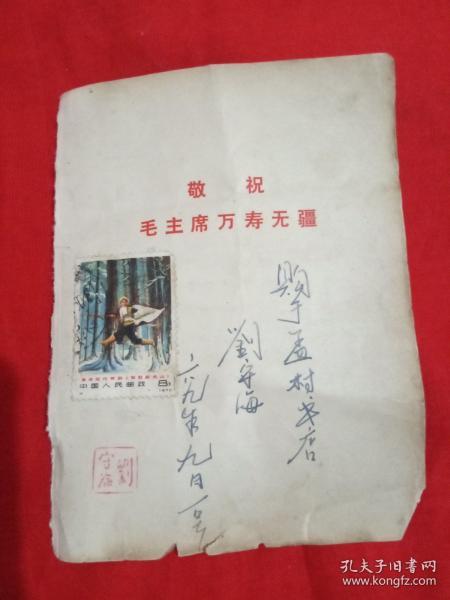 敬祝
毛主席万寿无疆
购于孟村书店
劉守海
六九年九月一号
中国人民邮政
8分
1970
劉守海
孔夫子旧书网
www.kongfz.com